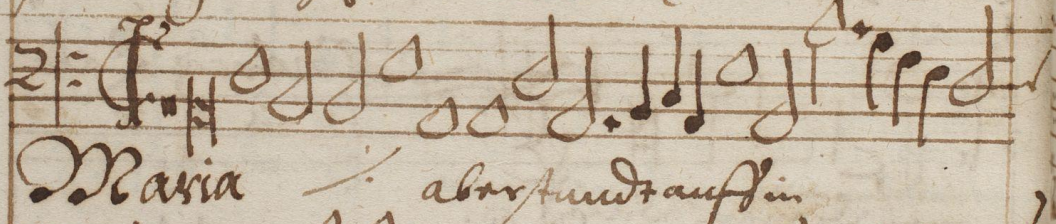 Maria ·/· aber stundt auff in